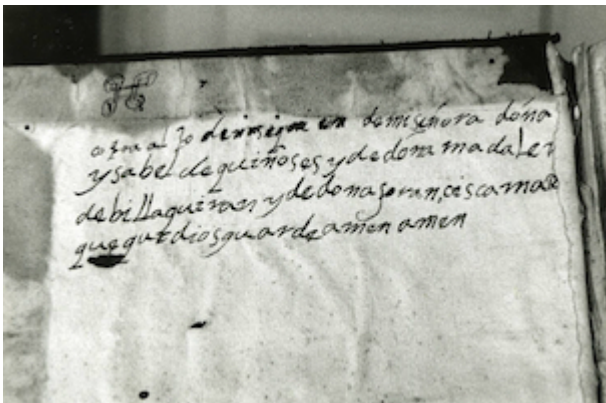 de mi señora doña
ysabel de quiñoses y de doña madalen
de billaquiran y de doña fran,cisca maR
que que dios guarde amen amen